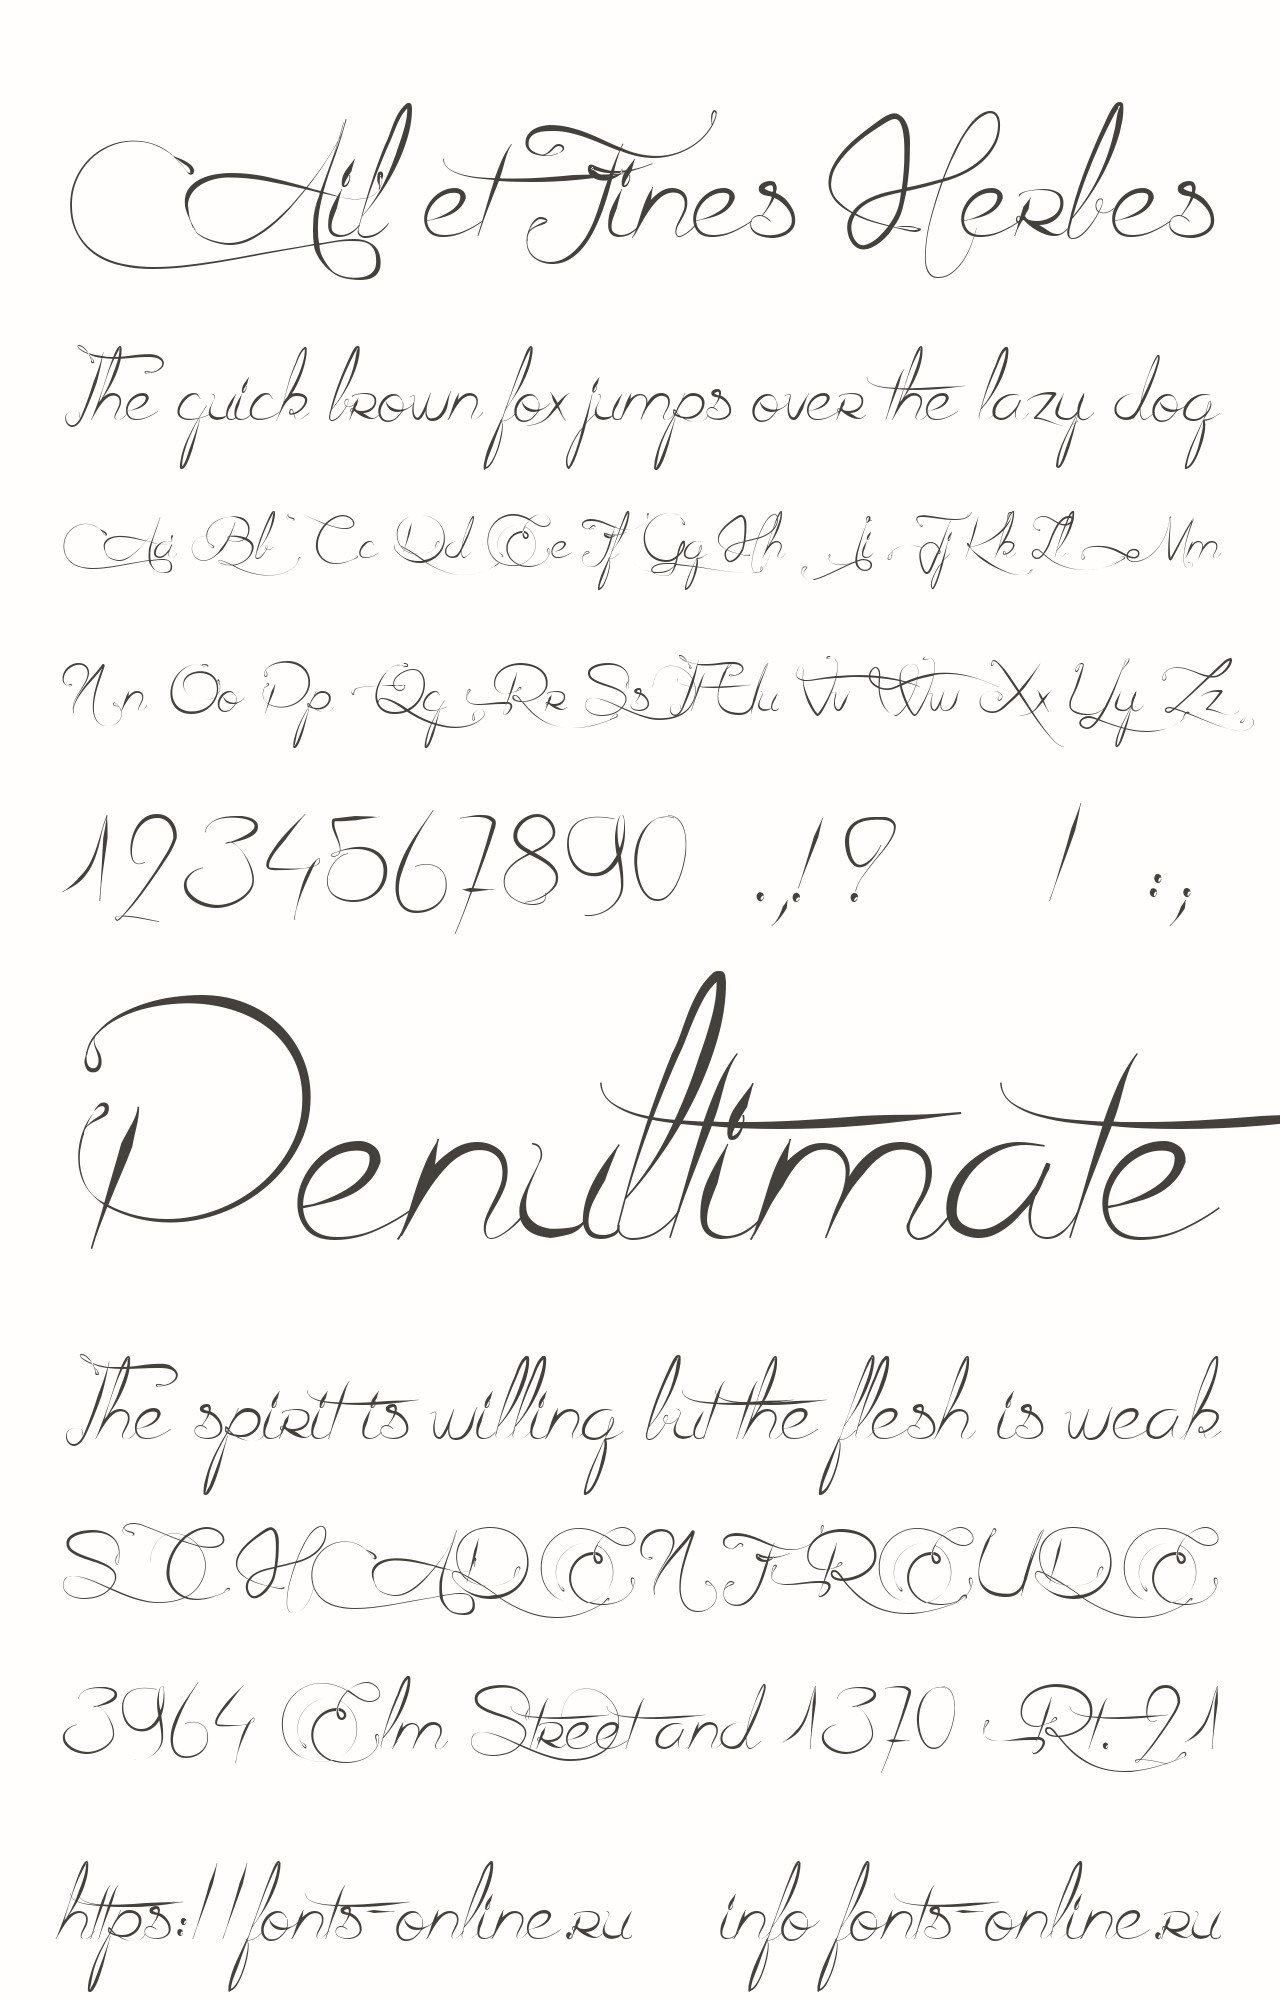 Ail et Fines Herbes
The quick brown fox jumps over the lazy dog
Aa Bb Cc Dd Ee Ff Gg Hh Ii Jj Kk Ll Mm
Nn Oo Pp Qq Rr Ss Tt Uu Vv Ww Xx Yy Zz
1234567890 .,!? / :;
Penultimate
The spirit is willing but the flesh is weak
SCHADENFREUDE
3964 Elm Street and 1370 Rt. 21
https://fonts-online.ru info fonts-online.ru